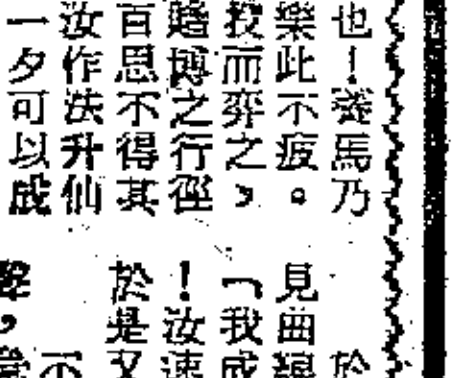 也！養馬乃
樂此不疲。
而弈之，
賭博之行徑
百思不得其
汝作法升仙
一夕可以成
於
見曲線
「我成
！汝速
於是又
不
，當